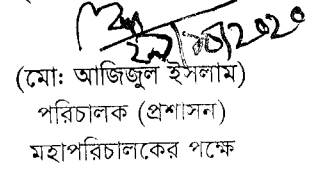 (মো: আজিজুল ইসলাম)
পরিচালক (প্রশাসন)
মহাপরিচালকের পক্ষে